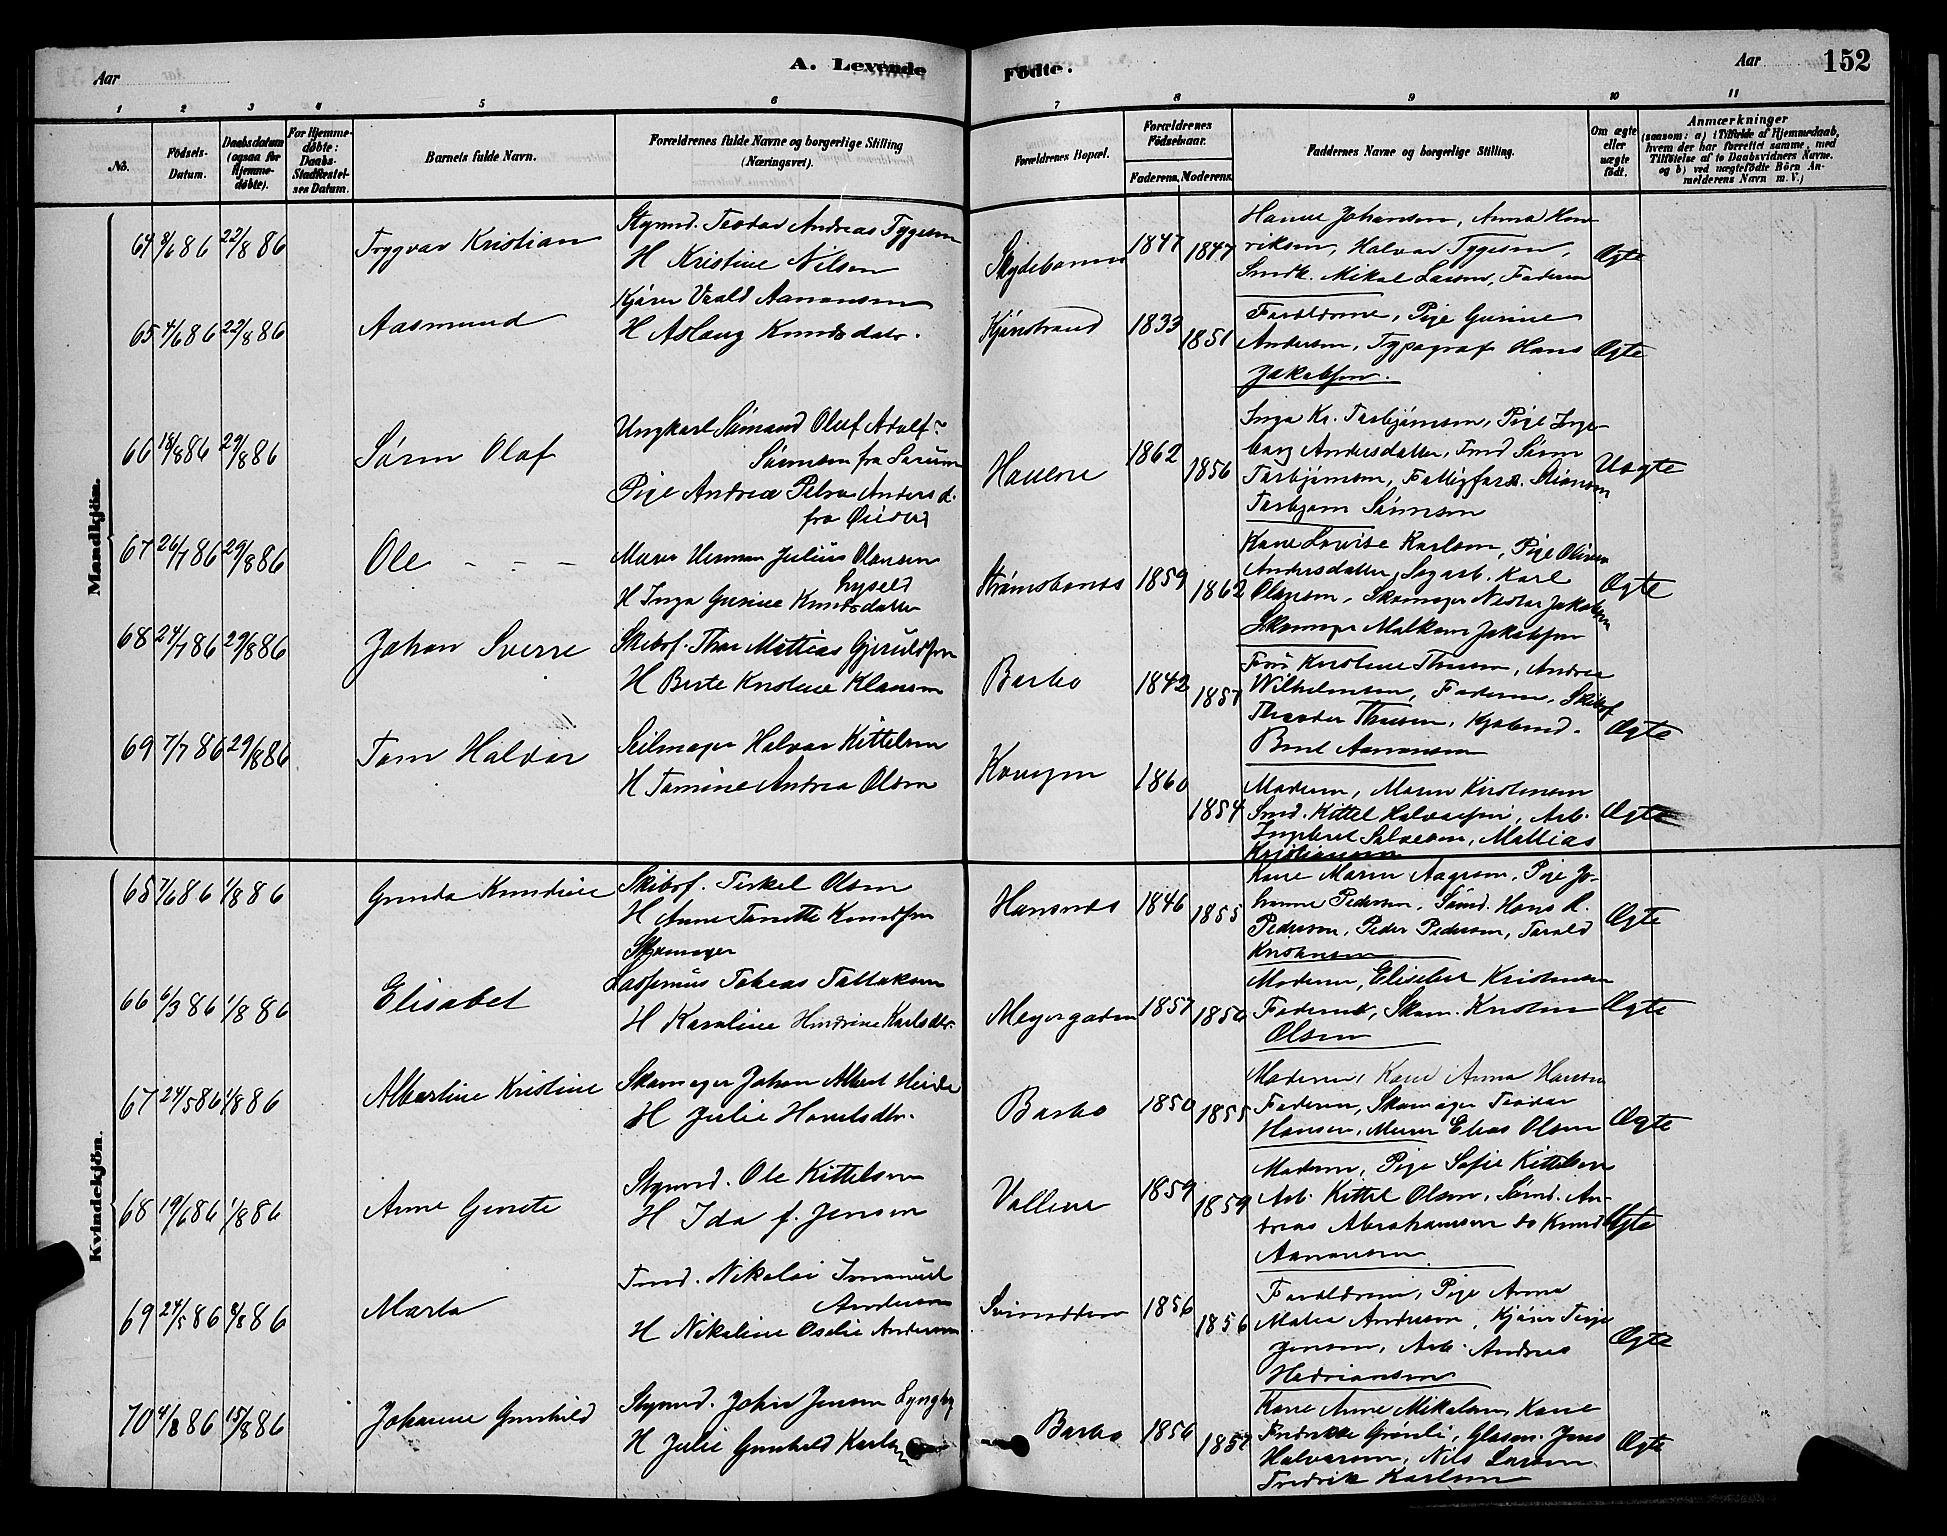 Aar
A. Levende
Födte.
Aar
152
1 2 3 4 5 6 7 8 9 10 11
No.
Födsels-Datum.
Daabsdatum (ogsaa for Hjemmedöbte).
For Hjemmedöbte: Daabs-Stadfæstelses Datum.
Barnets fulde Navn.
Forældrenes fulde Navne og borgerlige Stilling (Næringsvei).
Forældrenes Bopæl.
Forældrenes Födselsaar.
Faderens. Moderens.
Faddernes Navne og borgerlige Stilling.
Om ægte eller uægte födt.
Anmærkninger
(saasom: a) i Tilfælde af Hjemmedaab, hvem der har forrettet samme, med Tilföielse af to Daabsvidners Navne. og b) ved uægtefödte Börn Anmelderens Navn m. V.)
Mandkjön.
64 86 22/8 86 Trygvar Kristian
Styrmd. Teodor Andreas Tygesen
H Kristine Nilsen
1847 1847
Hanne Johansen, Anna Hen
riksen, Halvor Tygesen,
Smdk. Mikal Larsen, Faderen
Ægte
65 4/6 86 22/8 86 Aasmund
Kjører Vrald Aanonsen
H Aslaug Knudsdatr.
Kjønstrand 1833 1851
Forældrene, Pige Gurine
Andersen, Typograf Hans
Jakobsen.
Ægte
66 18/8 86 29/8 86 Sørin Olaf
Ungkarl Sømand Oluf Adolf
Sørensen fra
Pige Andrea Petra Anders d.
fra
1862 1856
Inga Kr. Torbjørnsen, Pige Inge
borg Andersdatter, Tmd Søren
Torbjørnsen, Fattigfor.
Torbjørn Sørensen
Uægte
67 26/7 86 29/8 86 Ole - - -
Murer Herman Julius Olausen
Lyseld
H Inga Gurine Knudsdatter
Strømsbones 1859 1862
Kone Lovise Karlsen, Pige
Andersdatter, Sagarb. Karl
Olausen, Skomager Jakobsen
Skomager Jakobsen
Ægte
68 24/7 86 29/8 86 Johan Sverre
Skibsf. Thor Mattias Gjeruldsen
H Berte Kristine Klausen
Barbo 1842 1857
Frøk Kristine Thorsen, Andrea
Wilhelmsen, Faderen, Skibsf
Theodor Thorsen, Kjøbmd.
Aanonsen
Ægte
69 7/7 86 29/8 86 Tom Halvor
Seilmager Halvor Kittelsen
H Tomine Andrea Olsen
1860 1854
Moderen, Maren Kristensen
Smd. Kittel Halvorsen, Arb.
Ingebret Salvesen, Mattias
Kristiansen
Ægte
Kvindekjön.
65 7/6 86 1/8 86 Gunda Knudine
Skibsf. Terkel Olsen
H Anne Tonette Knudsen
Hansnes 1846 1855
Kone Maren Aagesen, Pige Jo-
hanne Pedersen, Sømd. Hans R.
Pedersen, Peder Pedersen, Torald
Kristensen
Ægte
66 6/3 86 1/8 86 Elisabet
Skomager
Tobias Tallaksen
H Karoline Hindrine Karlsdtr.
Meyergaden 1857 1850
Moderen, Elisebet Kristensen
Faderen, Skom. Kristen
Olsen
Ægte
67 24/5 86 1/8 86 Albertine Kristine
Skomager Johan Albert
H Julie
Barbo 1850 1855
Moderen, Kone Anna Hansen
Faderen, Skomager Teodor
Hansen, Murer Elias Olsen
Ægte
68 19/6 86 1/8 86 Anne
Styrmd. Ole Kittelsen
H Ida f. Jensen
Vollene 1859 1859
Moderen, Pige Sofie Kittelsen
Arb. Kittel Olsen, Sømd. An-
dreas Abrahamsen do Knud
Aanonsen
Ægte
69 24/5 86 8/8 86 Marta
Tmd. Nikolai Imanuel
Andersen
H Nikoline Oselie Andersen
1856 1856
Forældrene, Pige Anna
Malea Andersen, Kjører Terje
Jensen, Arb. Andreas
Hadriansen
Ægte
70 4/8 86 15/8 86 Johanne Gunhild
Styrmd. John Jensen Lyngby
H Julie Gunhild Karlsen
Barbo 1856 1857
Kone Anne Mikalsen, Kone
Fredrikke Grønli, Glasm. Jens
Halvorsen, Nils Larsen
Fredrik Karlsen
Ægte